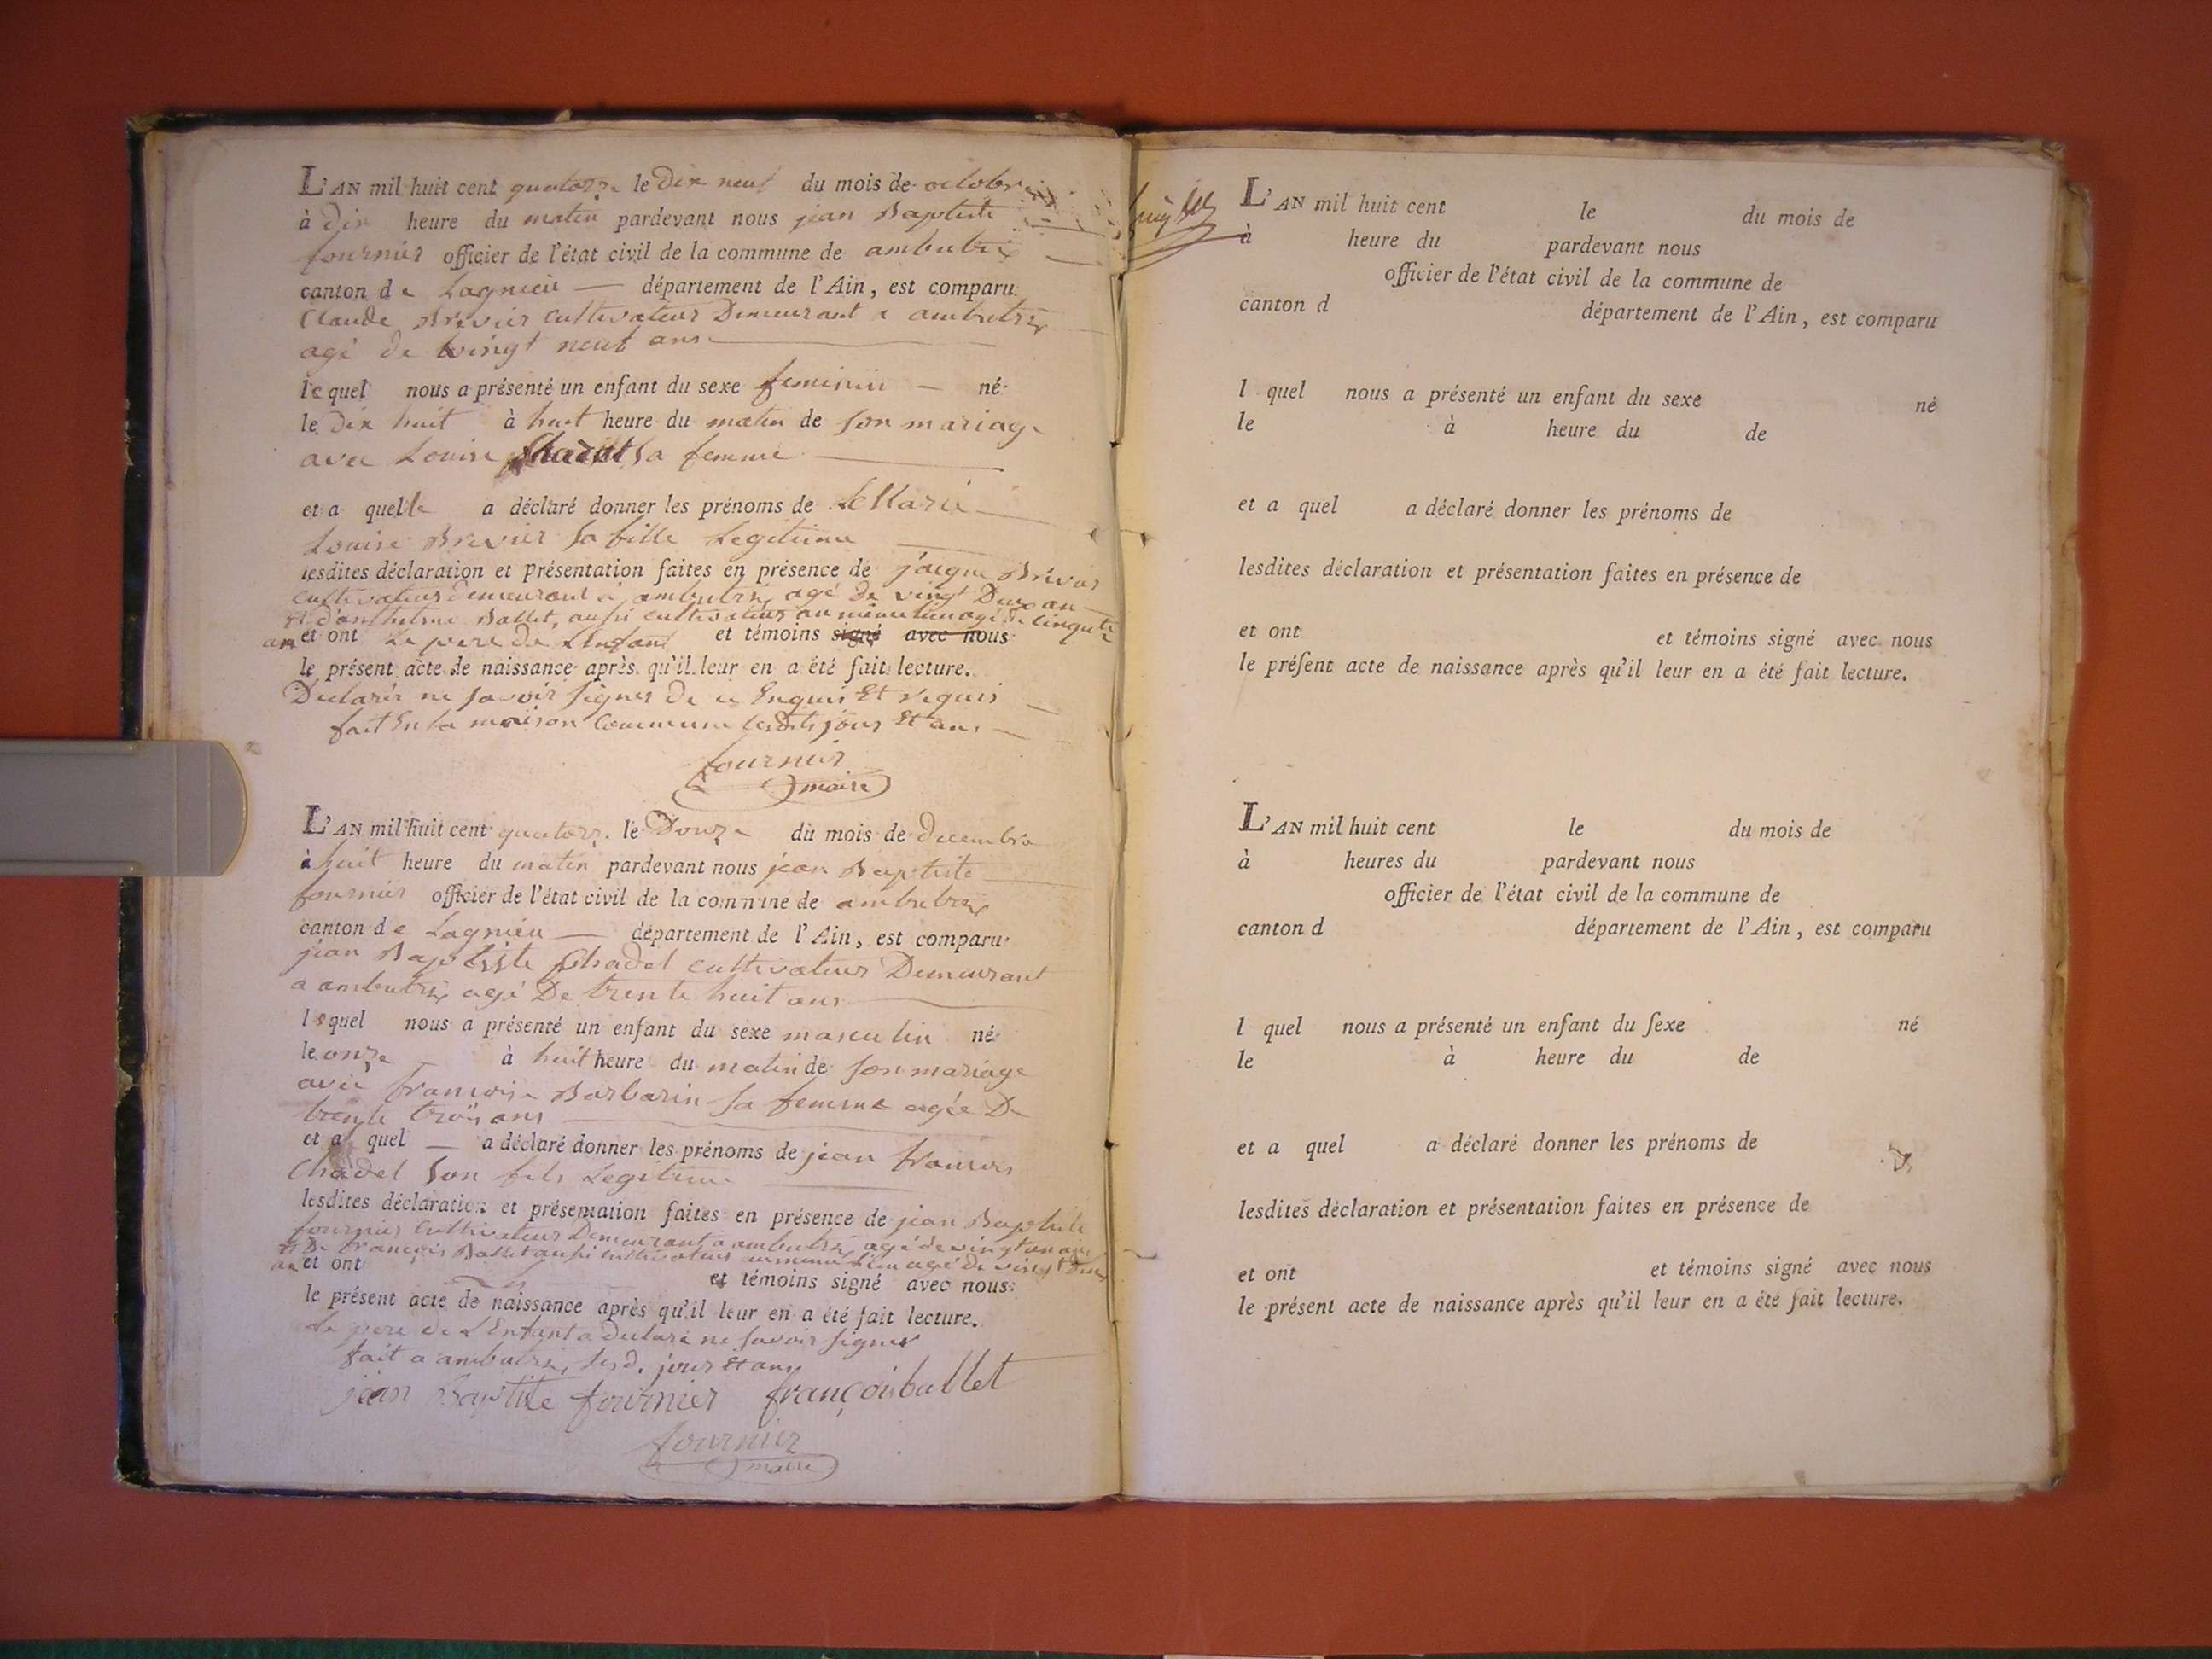 L'AN mil huit cent quatorze le Dix neuf du mois de octobre
à Dix heure du matin pardevant nous jean Baptiste
fournier officier de l'état civil de la commune de ambutrix
canton de Lagnieu — département de l'Ain, est comparu
Claude Brevier cultivateur Demeurant a ambutrix
agé de vingt neuf ans
lequel nous a présenté un enfant du sexe feminin — né
le Dix huit à huit heure du matin de son mariage
avec Louise Chadel sa femme
et a quelle a déclaré donner les prénoms de Marie
Louise Brevier sa fille Legitime
lesdites déclaration et présentation faites en présence de
cultivateur demeurant a ambutrix agé de vingt Deux an
et d'anthelme Ballet, aussi cultivateur au même lieu agé de cinquante
ans et ont Le pere de L'enfant et témoins signé avec nous
le présent acte de naissance après qu'il leur en a été fait lecture.
Declaré ne savoir signer de ce Enquis Et requis
fait En la maison Commune lesdits jours Et an
fournier
maire
L'AN mil huit cent quatorze le Douze du mois de Decembre
à huit heure du matin pardevant nous jean Baptiste
fournier officier de l'état civil de la commune de ambutrix
canton de Lagnieu — département de l'Ain, est comparu
jean Baptiste Chadel cultivateur Demeurant
a ambutrix agé De trente huit ans
lequel nous a présenté un enfant du sexe masculin né
le onze à huit heure du matin de son mariage
avec francoise Barbarin sa femme agée De
trente trois ans
et a quel — a déclaré donner les prénoms de jean francois
Chadel son fils Legitime
lesdites déclaration et présentation faites en présence de jean Baptiste
fournier cultivateur Demeurant a ambutrix agé de vingt un ans
et De françois Ballet aussi cultivateur au meme lieu agé de vingt Deux
an et ont et témoins signé avec nous
le présent acte de naissance après qu'il leur en a été fait lecture.
Le pere de L'Enfant a declaré ne savoir signer
fait a ambutrix, lesd. jours Et an
jean Baptiste fournier françois ballet
fournier
maire
L'AN mil huit cent le du mois de
à heure du pardevant nous
officier de l'état civil de la commune de
canton d département de l'Ain, est comparu
l quel nous a présenté un enfant du sexe né
le à heure du de
et a quel a déclaré donner les prénoms de
lesdites déclaration et présentation faites en présence de
et ont et témoins signé avec nous
le préſent acte de naissance après qu'il leur en a été fait lecture.
L'AN mil huit cent le du mois de
à heures du pardevant nous
officier de l'état civil de la commune de
canton d département de l'Ain, est comparu
l quel nous a présenté un enfant du ſexe né
le à heure du de
et a quel a déclaré donner les prénoms de
lesdites déclaration et présentation faites en présence de
et ont et témoins signé avec nous
le présent acte de naissance après qu'il leur en a été fait lecture.